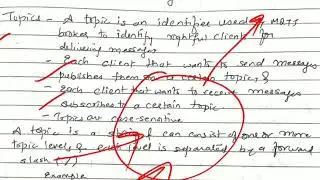 Topics - A topic is an identifier used MQTT
broker to identify rightful clients for
delivering messages
- Each client that wants to send messages
publishes them on a certain topic, &
- Each client that wants to receive messages
subscribes to a certain topic
- Topics are case-sensitive
A topic is a can consist of one or more
topic levels & each level is separated by a forward
slash (/)
Example